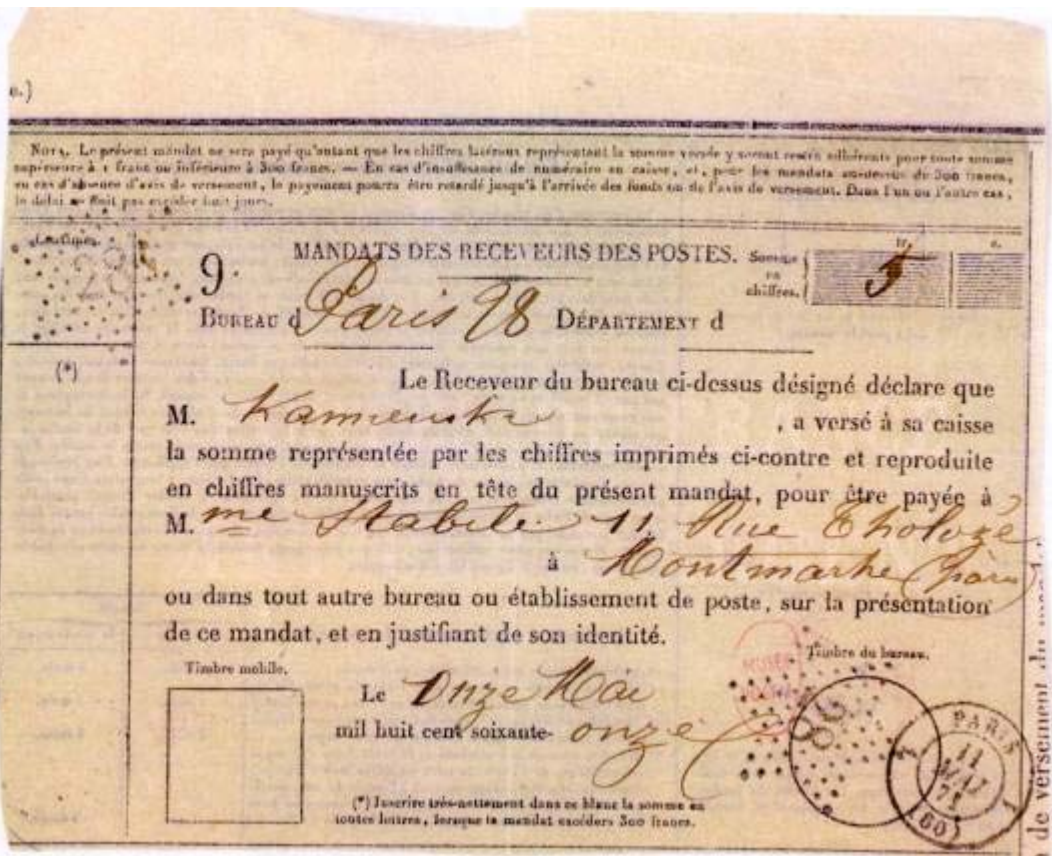 e.)
NOTA. Le présent mandat ne sera payé qu'autant que les chiffres latéraux représentant la somme versée y seront restés adhérents pour toute somme
supérieure à 1 franc ou inférieure à 300 francs. — En cas d'insuffisance de numéraire en caisse, et, pour les mandats au-dessus de 300 francs,
en cas d'absence d'avis de versement, le payement pourra être retardé jusqu'à l'arrivée des fonds ou de l'avis de versement. Dans l'un ou l'autre cas,
le délai ne doit pas excéder huit jours.
28
9.
MANDATS DES RECEVEURS DES POSTES.
Somme en chiffres.
fr. c.
5
BUREAU d Paris 28 DÉPARTEMENT d
(*)
Le Receveur du bureau ci-dessus désigné déclare que
M. Kamienski , a versé à sa caisse
la somme représentée par les chiffres imprimés ci-contre et reproduite
en chiffres manuscrits en tête du présent mandat, pour être payée à
M. me Stabile 11 Rue Tholozé
à Montmartre (paris)
ou dans tout autre bureau ou établissement de poste, sur la présentation
de ce mandat, et en justifiant de son identité.
Timbre mobile.
Timbre du bureau.
Le Onze Mai
mil huit cent soixante- onze
28
PARIS
11
MAI
71
(60)
(*) Inscrire très-nettement dans ce blanc la somme en
toutes lettres, lorsque le mandat excédera 300 francs.
n de versement du mandat